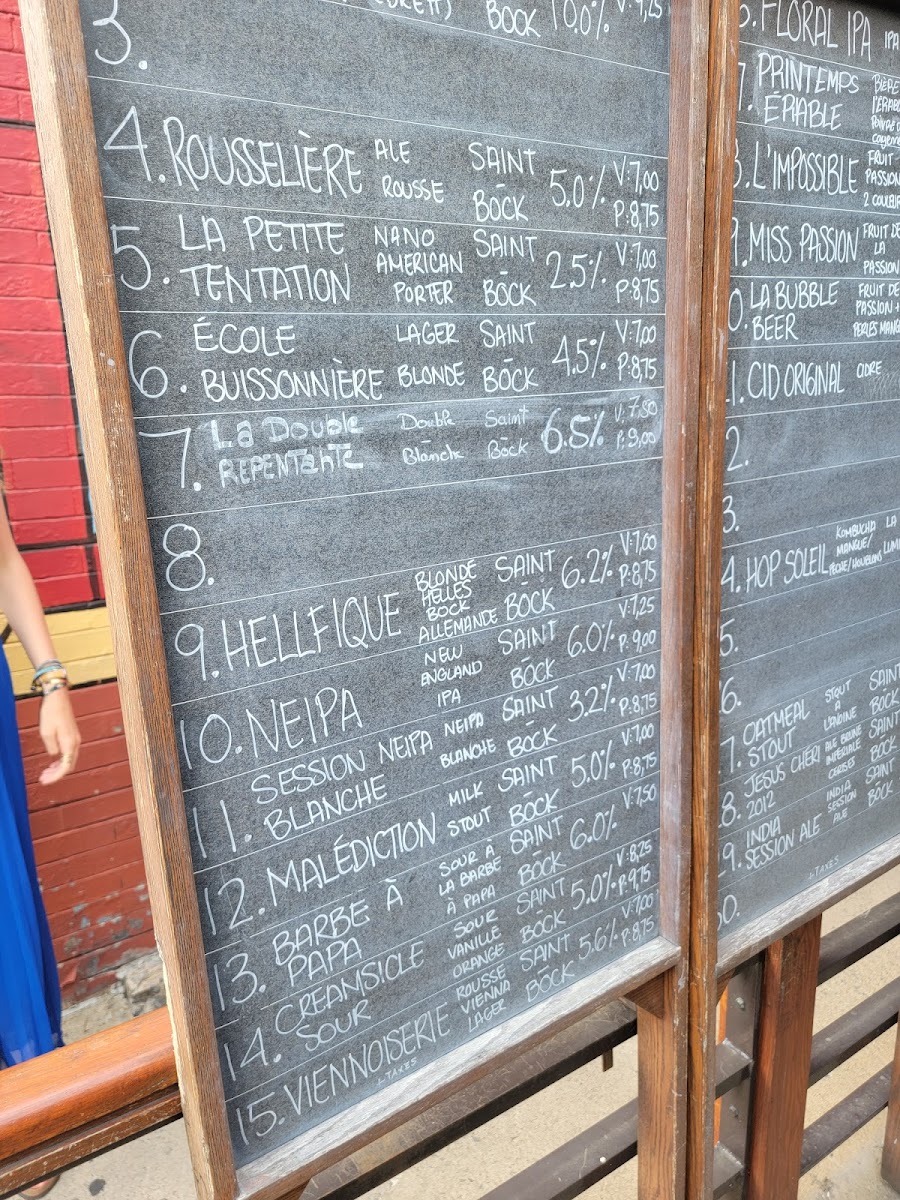 BOCK 10.0%
3.
4. ROUSSELIÈRE ALE ROUSSE SAINT-BOCK 5.0% V:7,00 P:8,75
5. LA PETITE TENTATION NANO AMERICAN PORTER SAINT-BOCK 2.5% V:7,00 P:8,75
6. ÉCOLE BUISSONNIÈRE LAGER BLONDE SAINT-BOCK 4.5% V:7,00 P:8,75
7. La Double REPENTANTE Double Blanche Saint-Bock 6.5% V:7,50 P:9,00
8.
9. HELLFIQUE BLONDE HELLES BOCK ALLEMANDE SAINT BOCK 6.2% V:7,00 P:8,75
10. NEIPA NEW ENGLAND IPA SAINT-BOCK 6.0% V:7,25 P:9,00
11. SESSION NEIPA BLANCHE NEIPA BLANCHE SAINT-BOCK 3.2% V:7,00 P:8,75
12. MALÉDICTION MILK STOUT SAINT-BOCK 5.0% V:7,00 P:8,75
13. BARBE À PAPA SOUR A LA BARBE À PAPA SAINT-BOCK 6.0% V:7,50
14. CREAMSICLE SOUR SOUR VANILLE ORANGE SAINT-BOCK 5.0% V:8,25 P:9,75
15. VIENNOISERIE ROUSSE VIENNA LAGER SAINT-BOCK 5.6% V:7,00 P:8,75
+TAXES
6. FLORAL IPA IPA
7. PRINTEMPS ÉRIABLE
L'IMPOSSIBLE FRUIT PASSION 2
9. MISS PASSION FRUIT DE LA PASSION
0. LA BUBBLE BEER FRUIT DE PASSION +
1. CID ORIGINAL CIDRE
2.
3.
4. HOP SOLEIL KOMBUCHA MANGUE/PÊCHE/HOUBLONS LA
5.
6.
7. OATMEAL STOUT STOUT A L'AVOINE SAINT BOCK
8. JESUS CHÉRI 2012 ALE BRUNE IMPÉRIALE CERISES SAINT BOCK
9. INDIA SESSION ALE INDIA SESSION ALE SAINT BOCK
0.
+TAXES